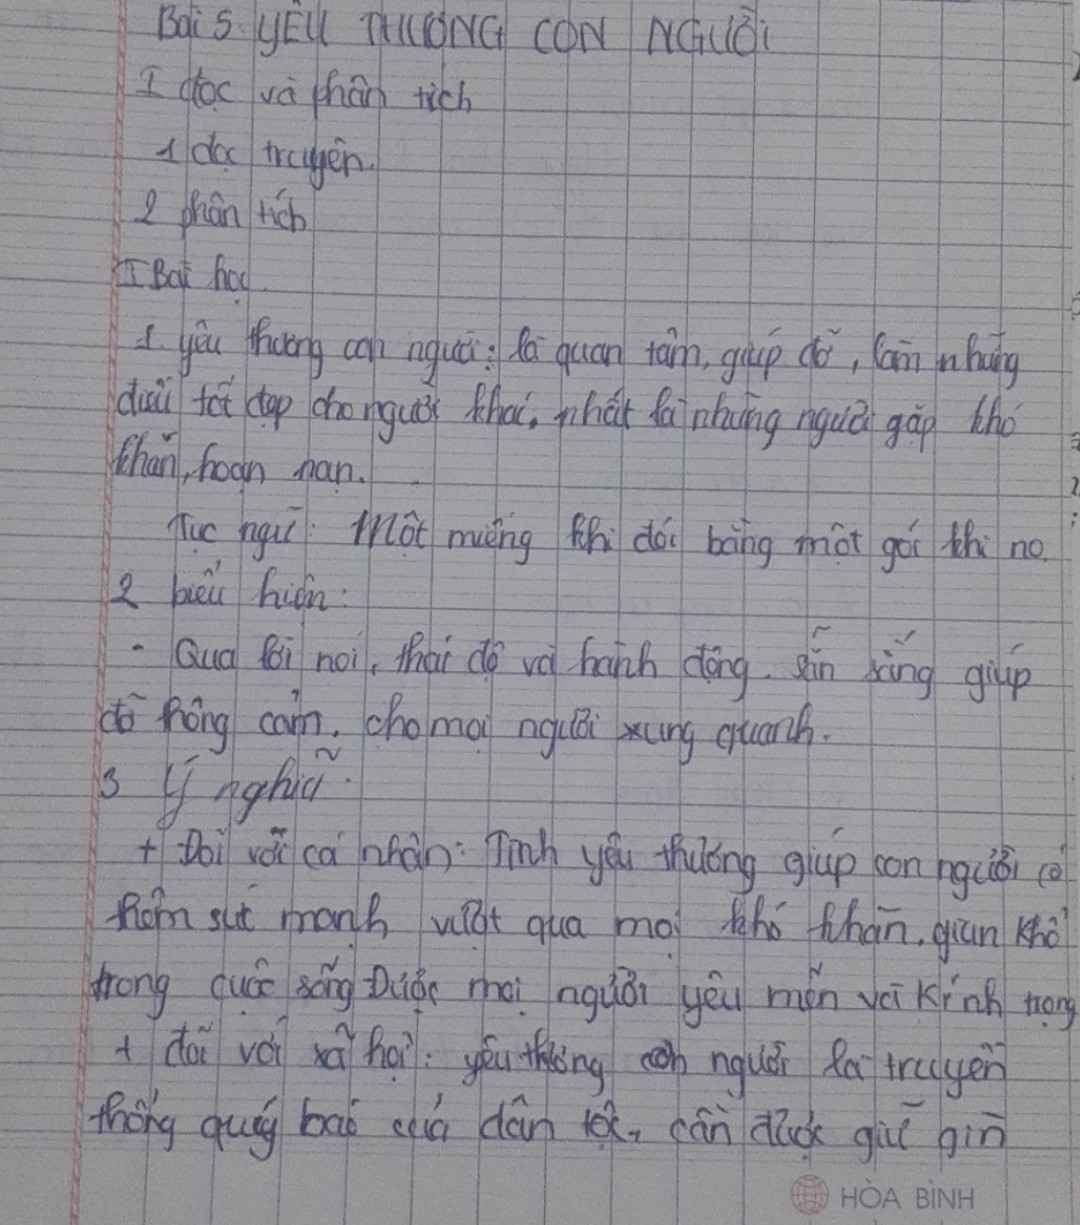 Bài 5 YÊU THƯƠNG CON NGƯỜI
I đọc và phân tích
1 đọc truyện.
2 phân tích
II Bài học
1. yêu thương con người: là quan tâm, giúp đỡ, làm những
điều tốt đẹp cho người khác, nhất là những người gặp khó
khăn, hoạn nạn.
Tục ngữ: Một miếng khi đói bằng một gói khi no
2 biểu hiện:
- Qua lời nói, thái độ và hành động. sẵn sàng giúp
đỡ thông cảm, cho mọi người xung quanh.
3 Ý nghĩa
+ Đối với cá nhân: Tình yêu thương giúp con người có
thêm sức mạnh vượt qua mọi khó khăn, gian khổ
trong cuộc sống Được mọi người yêu mến và kính trọng
+ đối với xã hội: yêu thương con người là truyền
thống quý báu của dân tộc, cần được giữ gìn
HÒA BÌNH